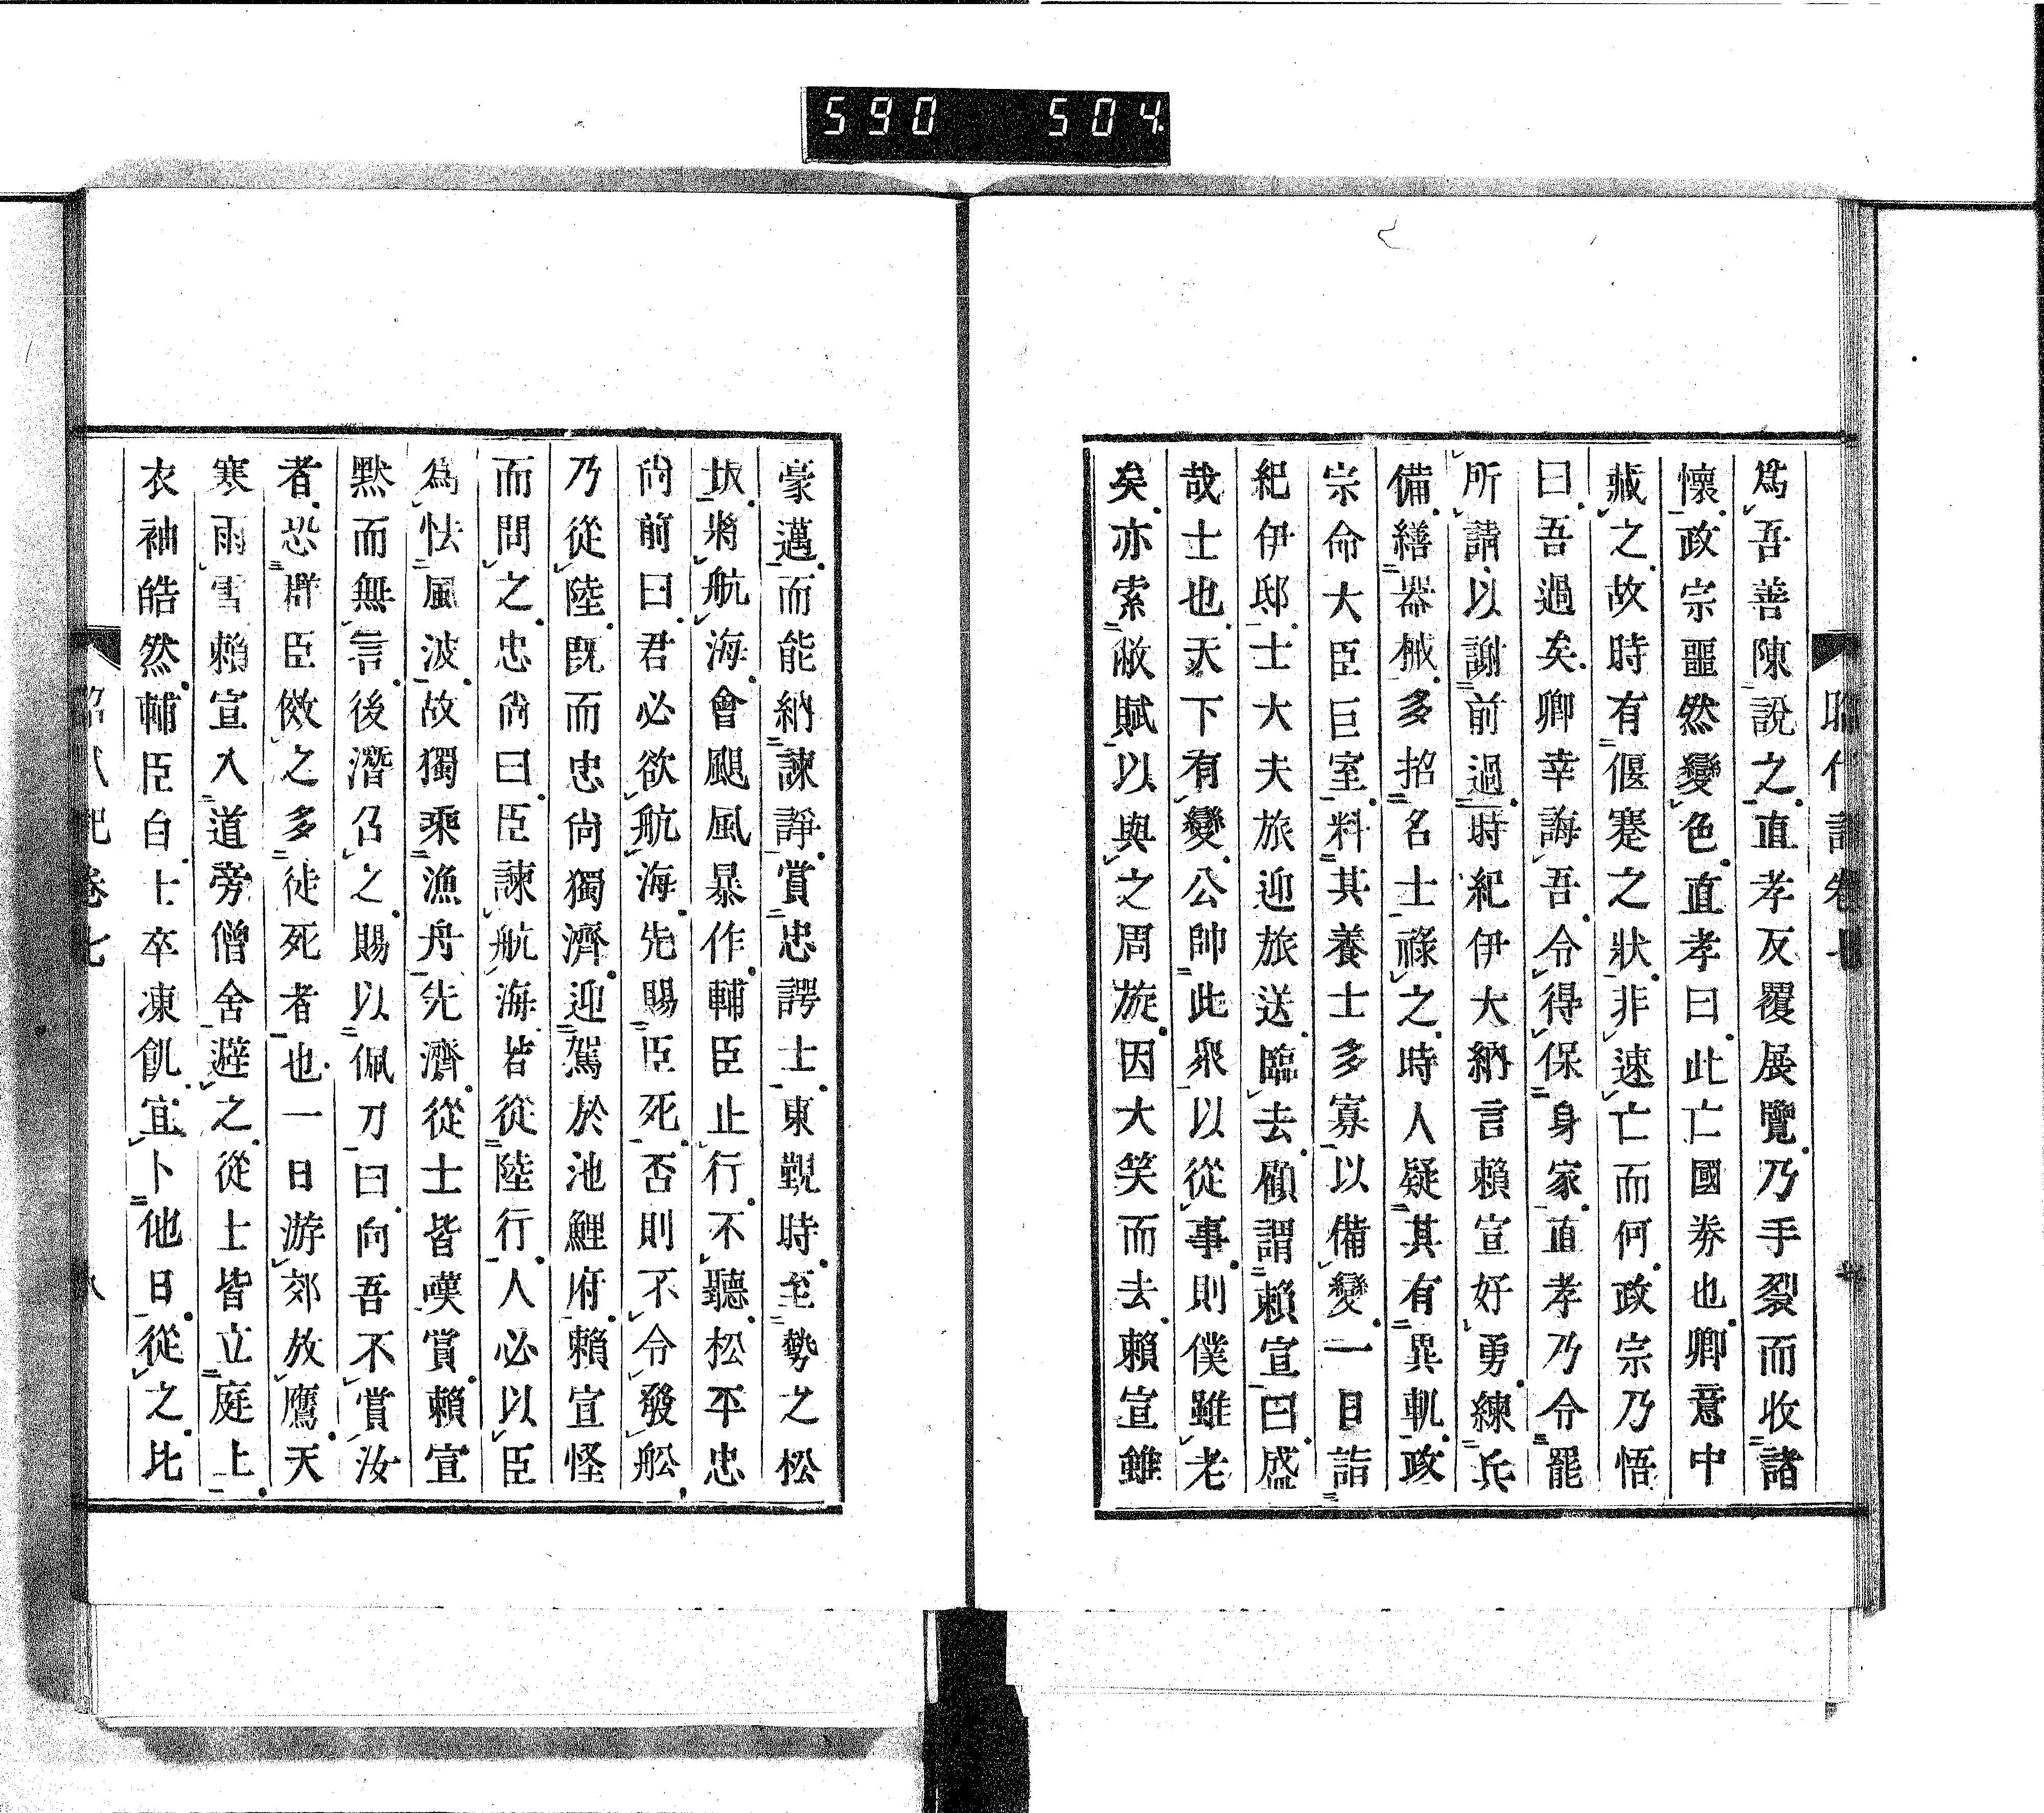 590 504
爲吾善陳說之直孝反覆展覽乃手裂而收諸
懷政宗噩然變色直孝曰此亡國券也卿意中
藏之故時有偃蹇之狀非速亡而何政宗乃悟
曰吾過矣卿幸誨吾令得保身家直孝乃令罷
所請以謝前過時紀伊大納言賴宣好勇練兵
備繕器械多招名士祿之時人疑其有異軌政
宗命大臣巨室料其養士多寡以備變一日詣
紀伊邸士大夫旅迎旅送臨去顧謂賴宣曰盛
哉士也天下有變公帥此衆以從事則僕雖老
矣亦索敝賦以與之周旋因大笑而去賴宣雖
豪邁而能納諫諍賞忠諤士東覲時至勢之松
坂將航海會颶風暴作輔臣止行不聽松平忠
尙前曰君必欲航海先賜臣死否則不令發船
乃從陸旣而忠尙獨濟迎駕於池鯉府賴宣怪
而問之忠尙曰臣諫航海皆從陸行人必以臣
爲怯風波故獨乘漁舟先濟從士皆嘆賞賴宣
黙而無言後潛召之賜以佩刀曰向吾不賞汝
者恐群臣傚之多徒死者也一日游郊放鷹天
寒雨雪賴宣入道旁僧舍避之從士皆立庭上
衣袖皓然輔臣白士卒凍飢宜卜他日從之比
昭代記卷七
八